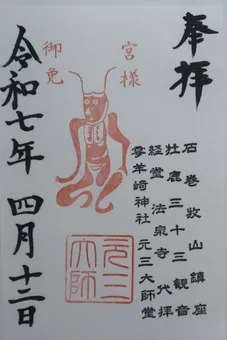 奉拝
石巻牧山鎮座
牡鹿三十三観音
経堂法泉寺代拝
零羊崎神社元三大師堂
宮様
御免
元三
大師
令和七年四月十二日